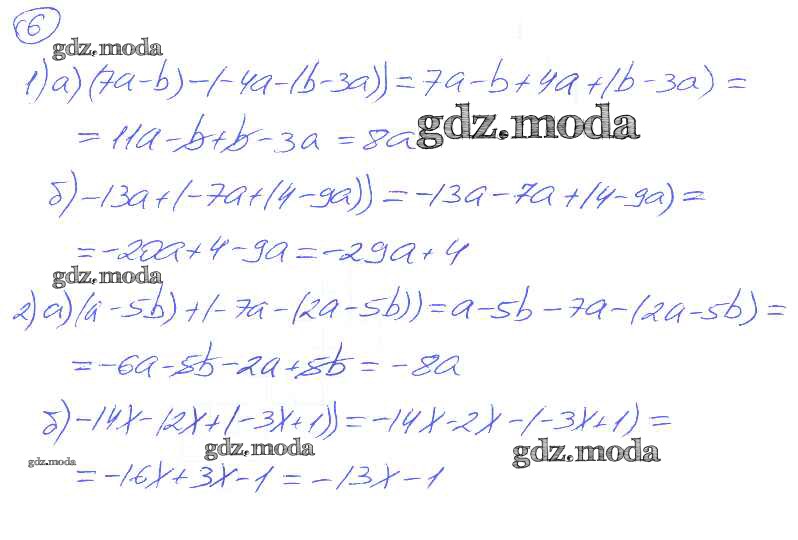 6
gdz.moda
1) а) (7a-b)-(-4a-(b-3a))=7a-b+4a+(b-3a)=
=11a-b+b-3a=8a gdz.moda
б) -13a+(-7a+(4-9a))=-13a-7a+(4-9a)=
=-20a+4-9a=-29a+4
gdz.moda
2) а) (a-5b)+(-7a-(2a-5b))=a-5b-7a-(2a-5b)=
=-6a-5b-2a+5b=-8a
б) -14x-(2x+(-3x+1))=-14x-2x-(-3x+1)=
gdz.moda gdz.moda gdz.moda
=-16x+3x-1=-13x-1